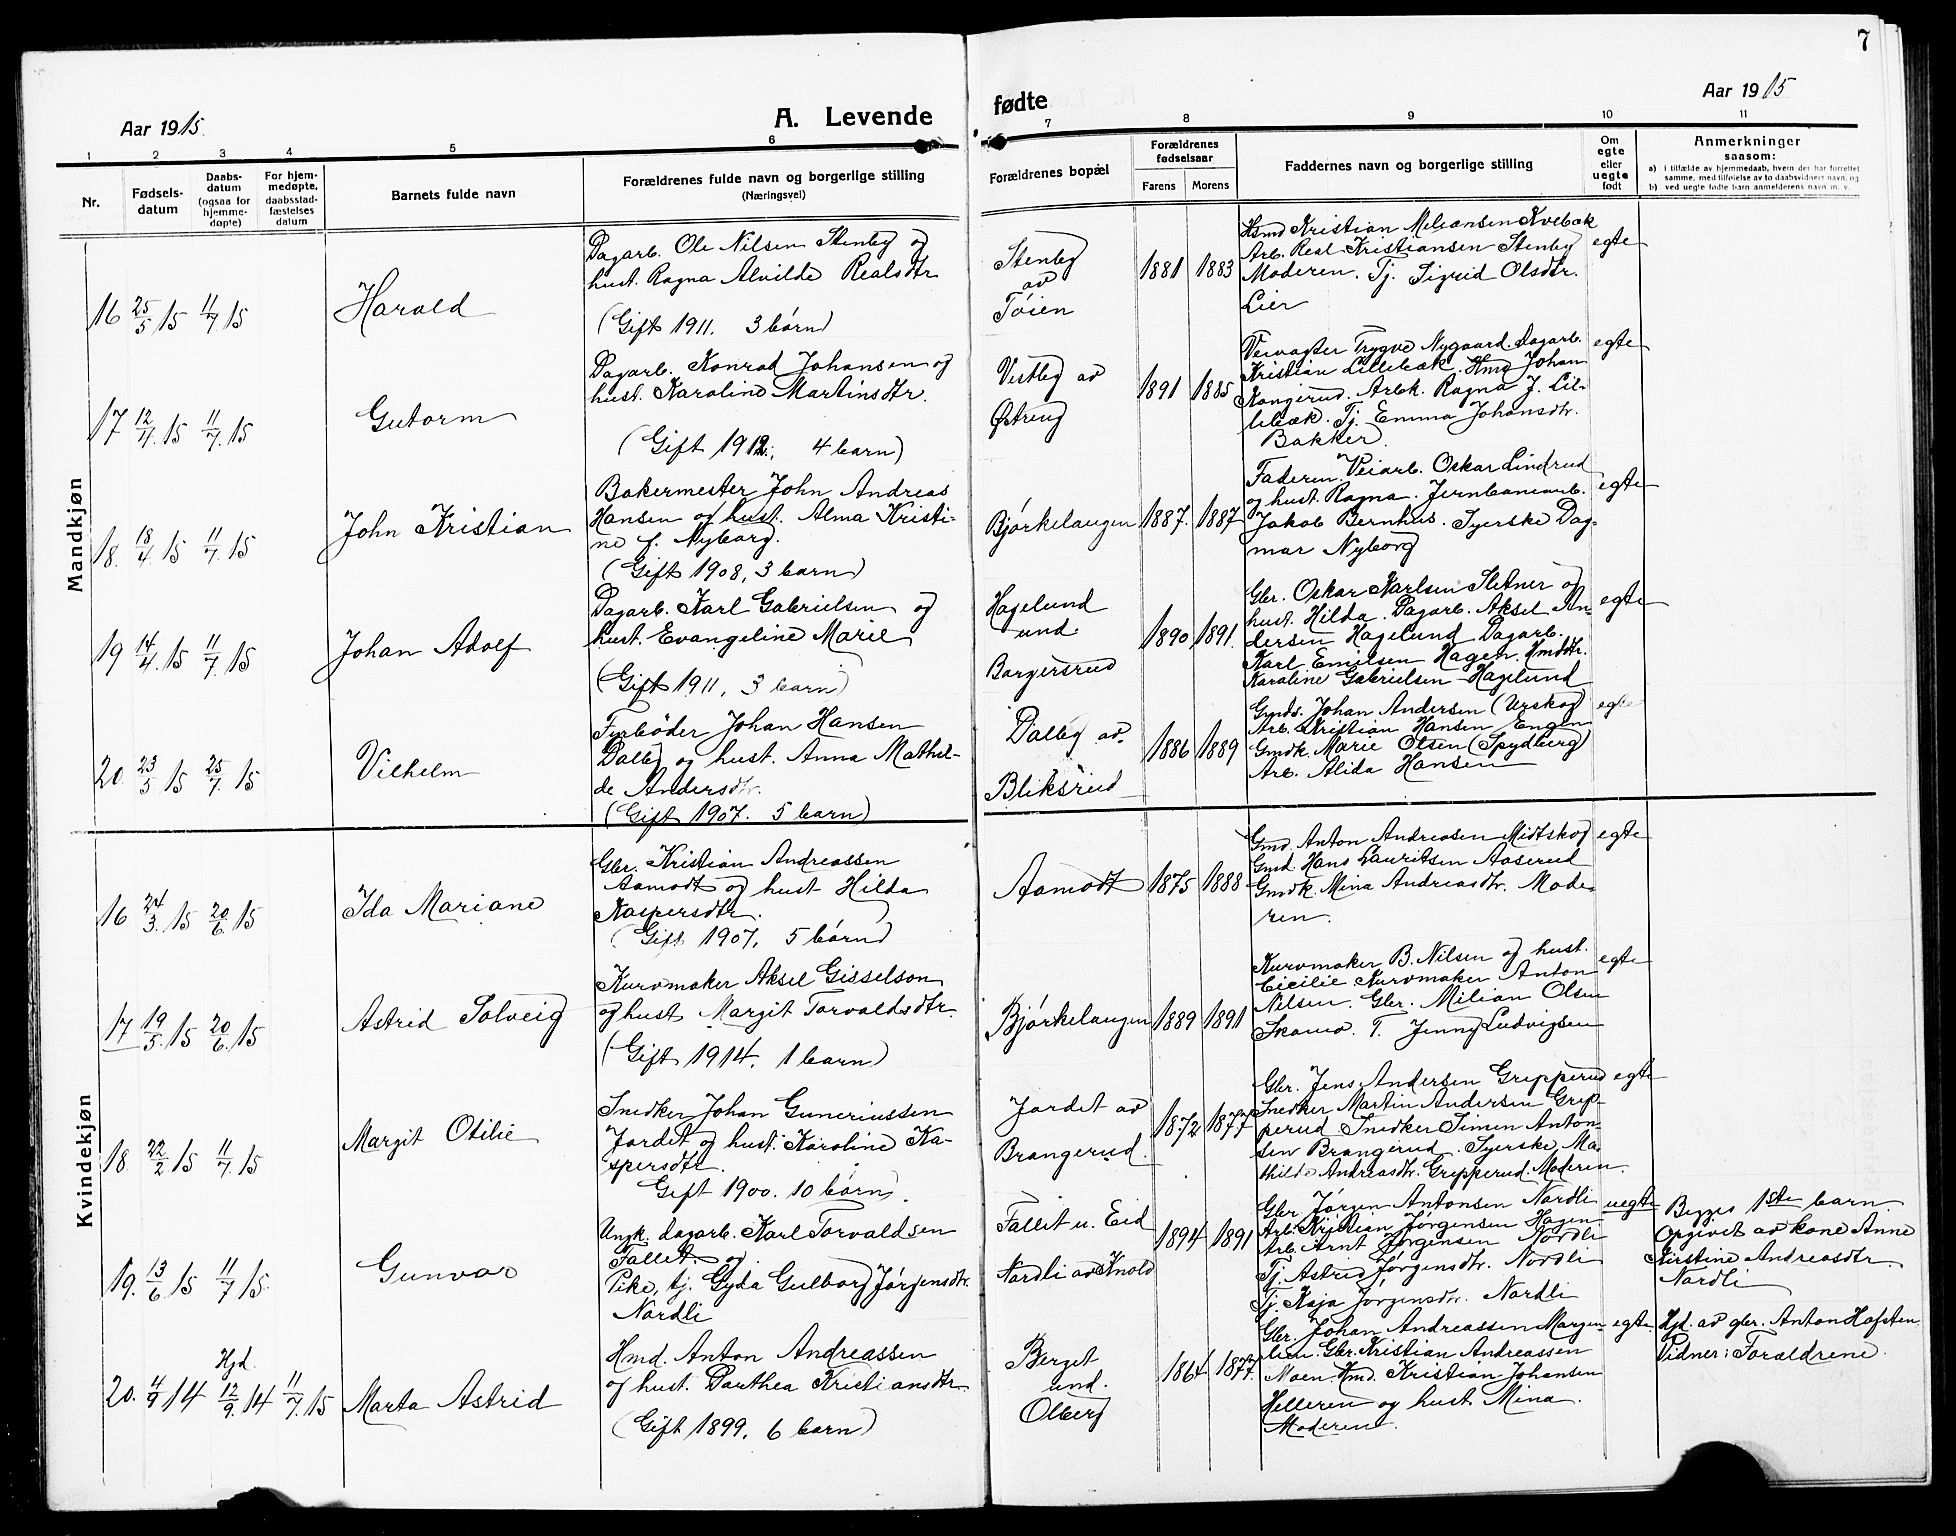 7
Aar 1915.
A. Levende
fødte
Aar 1915
1 2 3 4 5 6 7 8 9 10 11
Nr.
Fødsels-
datum
Daabs-
datum
(ogsaa for
hjemme-
døpte)
For hjem-
medøpte,
daabsstad-
fæstelses
datum
Barnets fulde navn
Forældrenes fulde navn og borgerlige stilling
(Næringsvei)
Forældrenes bopæl
Forældrenes
fødselsaar
Farens Morens
Faddernes navn og borgerlige stilling
Om
egte
eller
uegte
født
Anmerkninger
saasom:
a) i tilfælde av hjemmedaab, hvem der har forrettet
samme, med tilføielse av to daabsvidners navn, og
b) ved uegte fødte barn anmelderens navn m. v.
Mandkjøn
16 25/5 15 11/7 15
Harald
Dagarb. Ole Nilsen Stenby og
hust. Ragna Alvilde Realsdtr
(Gift 1911. 3 børn)
Stenby
av
Tøien
1881 1883
Hsmd Kristian Kvebæk
Arb. Real Kristiansen Stenby
Moderen. Tj. Sigrid Olsdtr.
Lier
egte
17 12/4 15 11/7 15
Gutorm
Dagarb. Konrad Johansen og
hust. Karoline Martinsdtr.
(Gift 1912, 4 barn)
Vestby av
Østreng
1891 1885
Veivagter Trygve Nygaard. Dagarb.
Kristian Lillebæk. Hmd Johan
Kongerud. Arbk. Ragna J. Lil-
lebæk. Tj. Emma Johansdtr.
Bakker.
egte
18. 18/4 15 11/7 15
John Kristian
Bakermester John Andreas
Hansen og hust. Alma Kristi-
ne f. Nyborg.
(Gift 1908, 3 barn)
Bjørkelangen
1887. 1887
Faderen. Veiarb. Oskar Lindrud
og hust. Ragna. Jernbanearb.
Jakob Bernhus. Syerske Dag-
mar Nyborg
egte
19 14/4 15 11/7 15
Johan Adolf
Dagarb. Karl Gabrielsen og
hust. Evangeline Marie
(Gift 1911, 3 barn)
Hagelund
und.
Borgersrud
1890 1891.
Gbr. Oskar Karlsen Sletner og
hust. Hilda. Dagarb. Aksel An-
dersen Hagelund Dagarb.
Karl Emilsen Hagen. Hmdtr.
Karoline Gabrielsen Hagelund
egte
20. 23/5 15 25/7 15
Vilhelm
Fyrbøder Johan Hansen
Dalby og hust. Anna Mathil-
de Andersdtr.
(Gift 1907. 5 barn)
Dalby av
Bliksrud
1886 1889
Gmds. Johan Andersen (Urskog)
Arb. Kristian Hansen Engen
Gmdk. Marie Olsen (Spydberg)
Arb. Alida Hansen
egte
Kvindekjøn
16 24/3 15 20/6 15
Ida Mariane
Gbr. Kristian Andreassen
Aamodt og hust Hilda
Kaspersdtr.
(Gift 1907, 5 børn)
Aamodt
1875 1888
Gmd. Anton Andreasen Midtskog
Gmd. Hans Lauritsen Aaserud
Gmdk Mina Andreasdtr. Mode-
ren.
egte
17 19/5 15 20/6 15
Astrid Solveig
Kurvmaker Aksel Gisselson
og hust Margit Torvaldsdtr.
(Gift 1914. 1 barn)
Bjørkelangen
1889 1891
Kurvmaker B. Nilsen og hust.
Cicilie Kurvmaker Anton
Nilsen. Gbr. Milian Olsen
Skamo. T. Jenny Ludvigsen
egte
18. 22/2 15 11/7 15
Margit Otilie
Snedker Johan Guneriussen
Jordet og hust. Karoline Ka-
spersdtr.
Gift 1900. 10 børn).
Jordet av
Brangerud.
1872 1877
Gbr. Jens Andersen Gripperud
Snedker Martin Andersen Grip-
perud. Snedker Simen Anton-
sen Brangerud. Syerske Ma-
thilde Andreasdtr. Gripperud. Moderen.
egte
19. 13/6 15 11/7 15.
Gunvor
Ungk. dagarb. Karl Torvaldsen
Fallet. og
Pike, tj. Gyda Gulborg Jørgensdtr.
Nordli
Fallet u. Eid
Nordli av Knold
1894 1891
Gbr Jørgen Antonsen Nordli
Arb. Kristian Jørgensen Hagen
Arb. Arnt Jørgensen Nordli
Tj. Astrid Jørgensdtr. Nordli
Tj. Kaja Jørgensdtr. Nordli
uegte
Begges 1ste barn.
Opgivet av kone Anne
Kirstine Andreasdtr
Nordli
20. 4/9 14 Hjd. 12/9. 14 11/7. 15
Marta Astrid
Hmd. Anton Andreassen
og hust. Dorthea Kristiansdtr
(Gift 1899. 6 barn)
Berget
und.
Olberg
1864 1877.
Gbr. Johan Andreassen Morgen-
lien. Gbr. Kristian Andreassen
Moen. Hmd. Kristian Johansen
Helleren og hust Mina.
Moderen.
egte.
Hjd. av gbr. Anton Hofsten
Vidner: Forældrene.